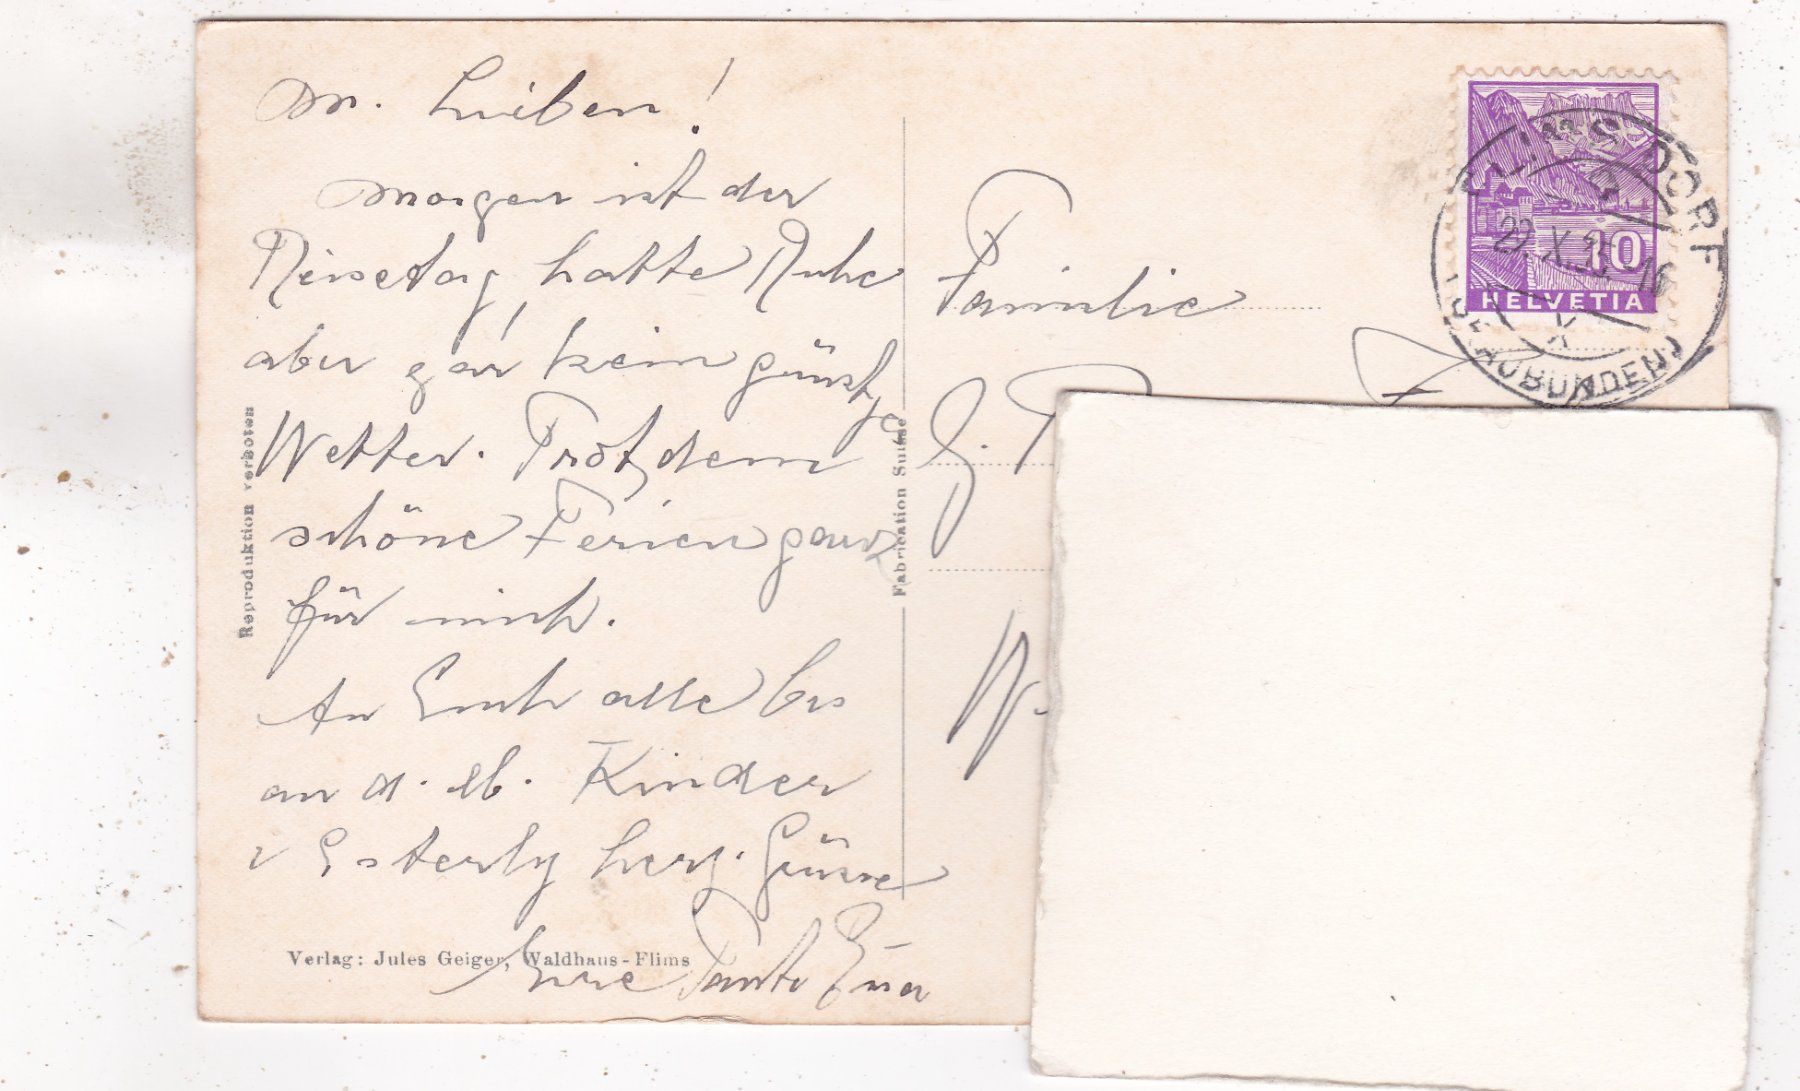 M. Lieben!
Morgen ist der
Reisetag, hatte Ruhe
aber gar kein günst
ge
Wetter. Trotzdem
schöne Ferien ganz
für mich.
An Euch alle bes
an d. lb. Kinder
u Esterly herz. Grüsse
Eure Tante
Reproduktion verboten
Verlag: Jules Geiger, Waldhaus-Flims
Fabrication Suisse
Familie
W.
10
HELVETIA
FLIMS DORF
(GRAUBÜNDEN)